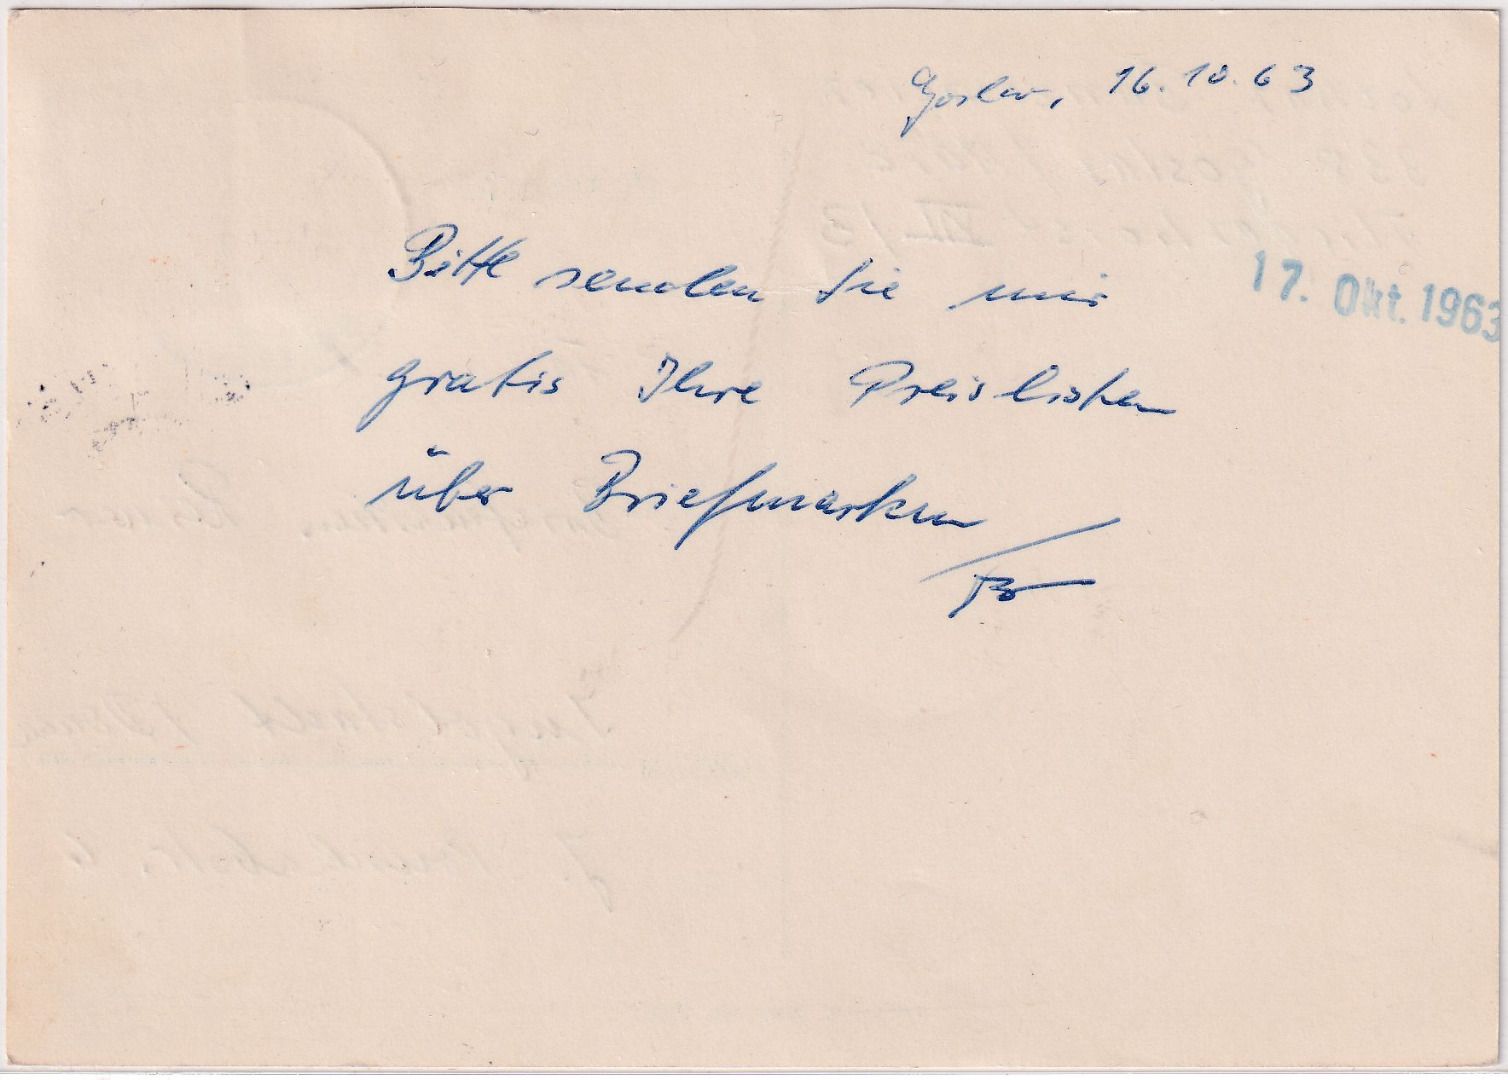 Goslar, 16.10.63
Bitte senden Sie mir
17. Okt. 1963
gratis Ihre Preislisten
über Briefmarken